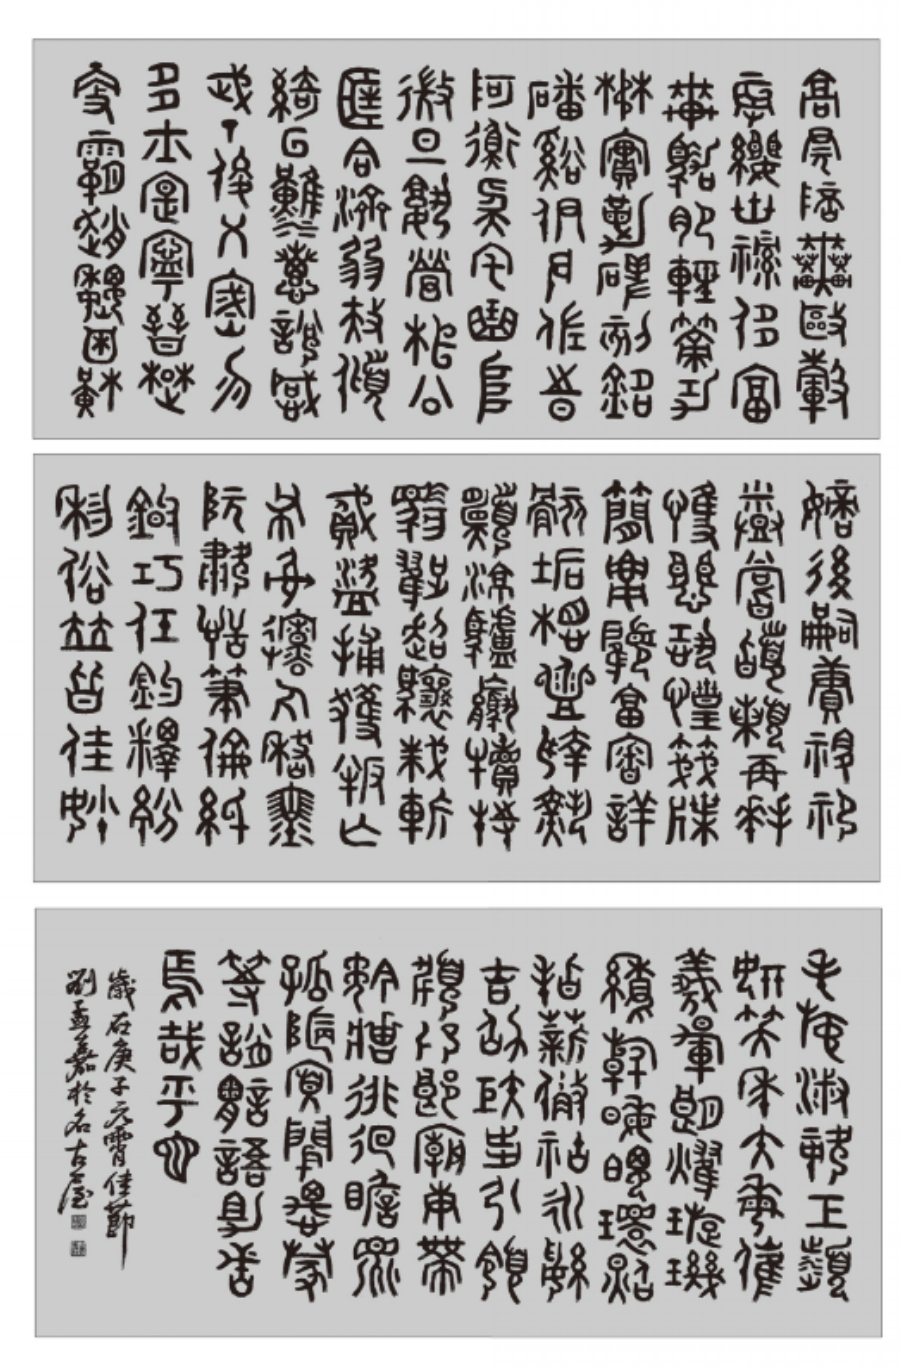 高冠陪輦驅轂
振纓世祿侈富
車駕肥輕策功
茂實勒碑刻銘
磻溪伊尹佐時
阿衡奄宅曲阜
微旦孰營桓公
匡合濟弱扶傾
綺回漢惠說感
武丁俊乂密勿
多士寔寧晉楚
更霸趙魏困橫
嫡後嗣續祭祀
蒸嘗稽顙再拜
悚懼恐惶牋牒
簡要顧答審詳
骸垢想浴執熱
願涼驢騾犢特
駭躍超驤誅斬
賊盜捕獲叛亡
布射遼丸嵇嘯
阮琴恬筆倫紙
鈞巧任釣釋紛
利俗並皆佳妙
毛施淑姿工顰
妍笑年矢每催
羲暉朗耀璇璣
懸斡晦魄環照
指薪修祜永綏
吉劭矩步引領
俯仰廊廟束帶
矜莊徘徊瞻眺
孤陋寡聞愚蒙
等誚謂語助者
焉哉乎也
歲在庚子元宵佳節
劉孟嘉於名古屋